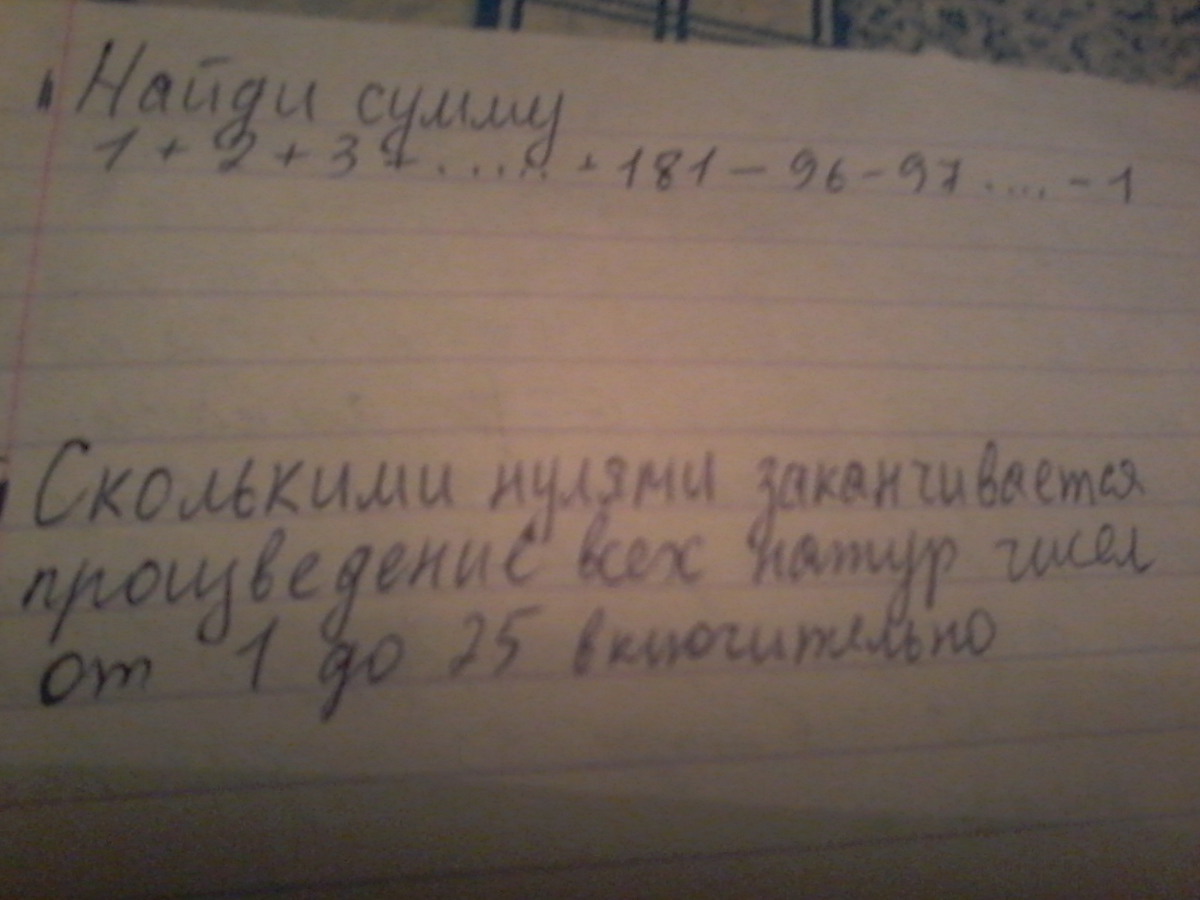 Найди сумму
1 + 2 + 3 + ..... + 181 - 96 - 97 .... - 1
Сколькими нулями заканчивается
произведение всех натур чисел
от 1 до 25 включительно